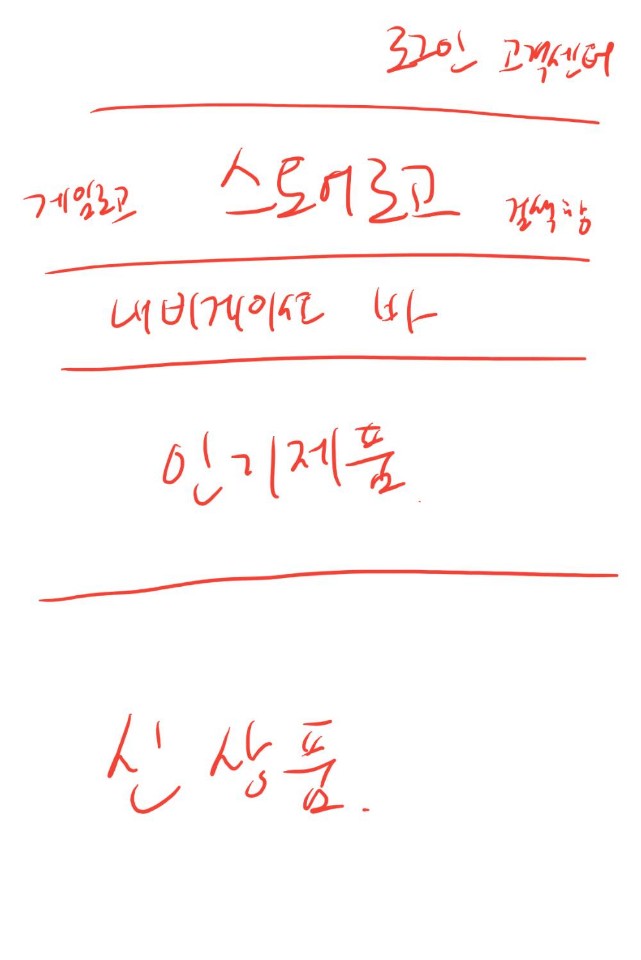 로그인 고객센터
게임로고 스토어로고 검색창
내비게이션 바
인기제품
신상품.